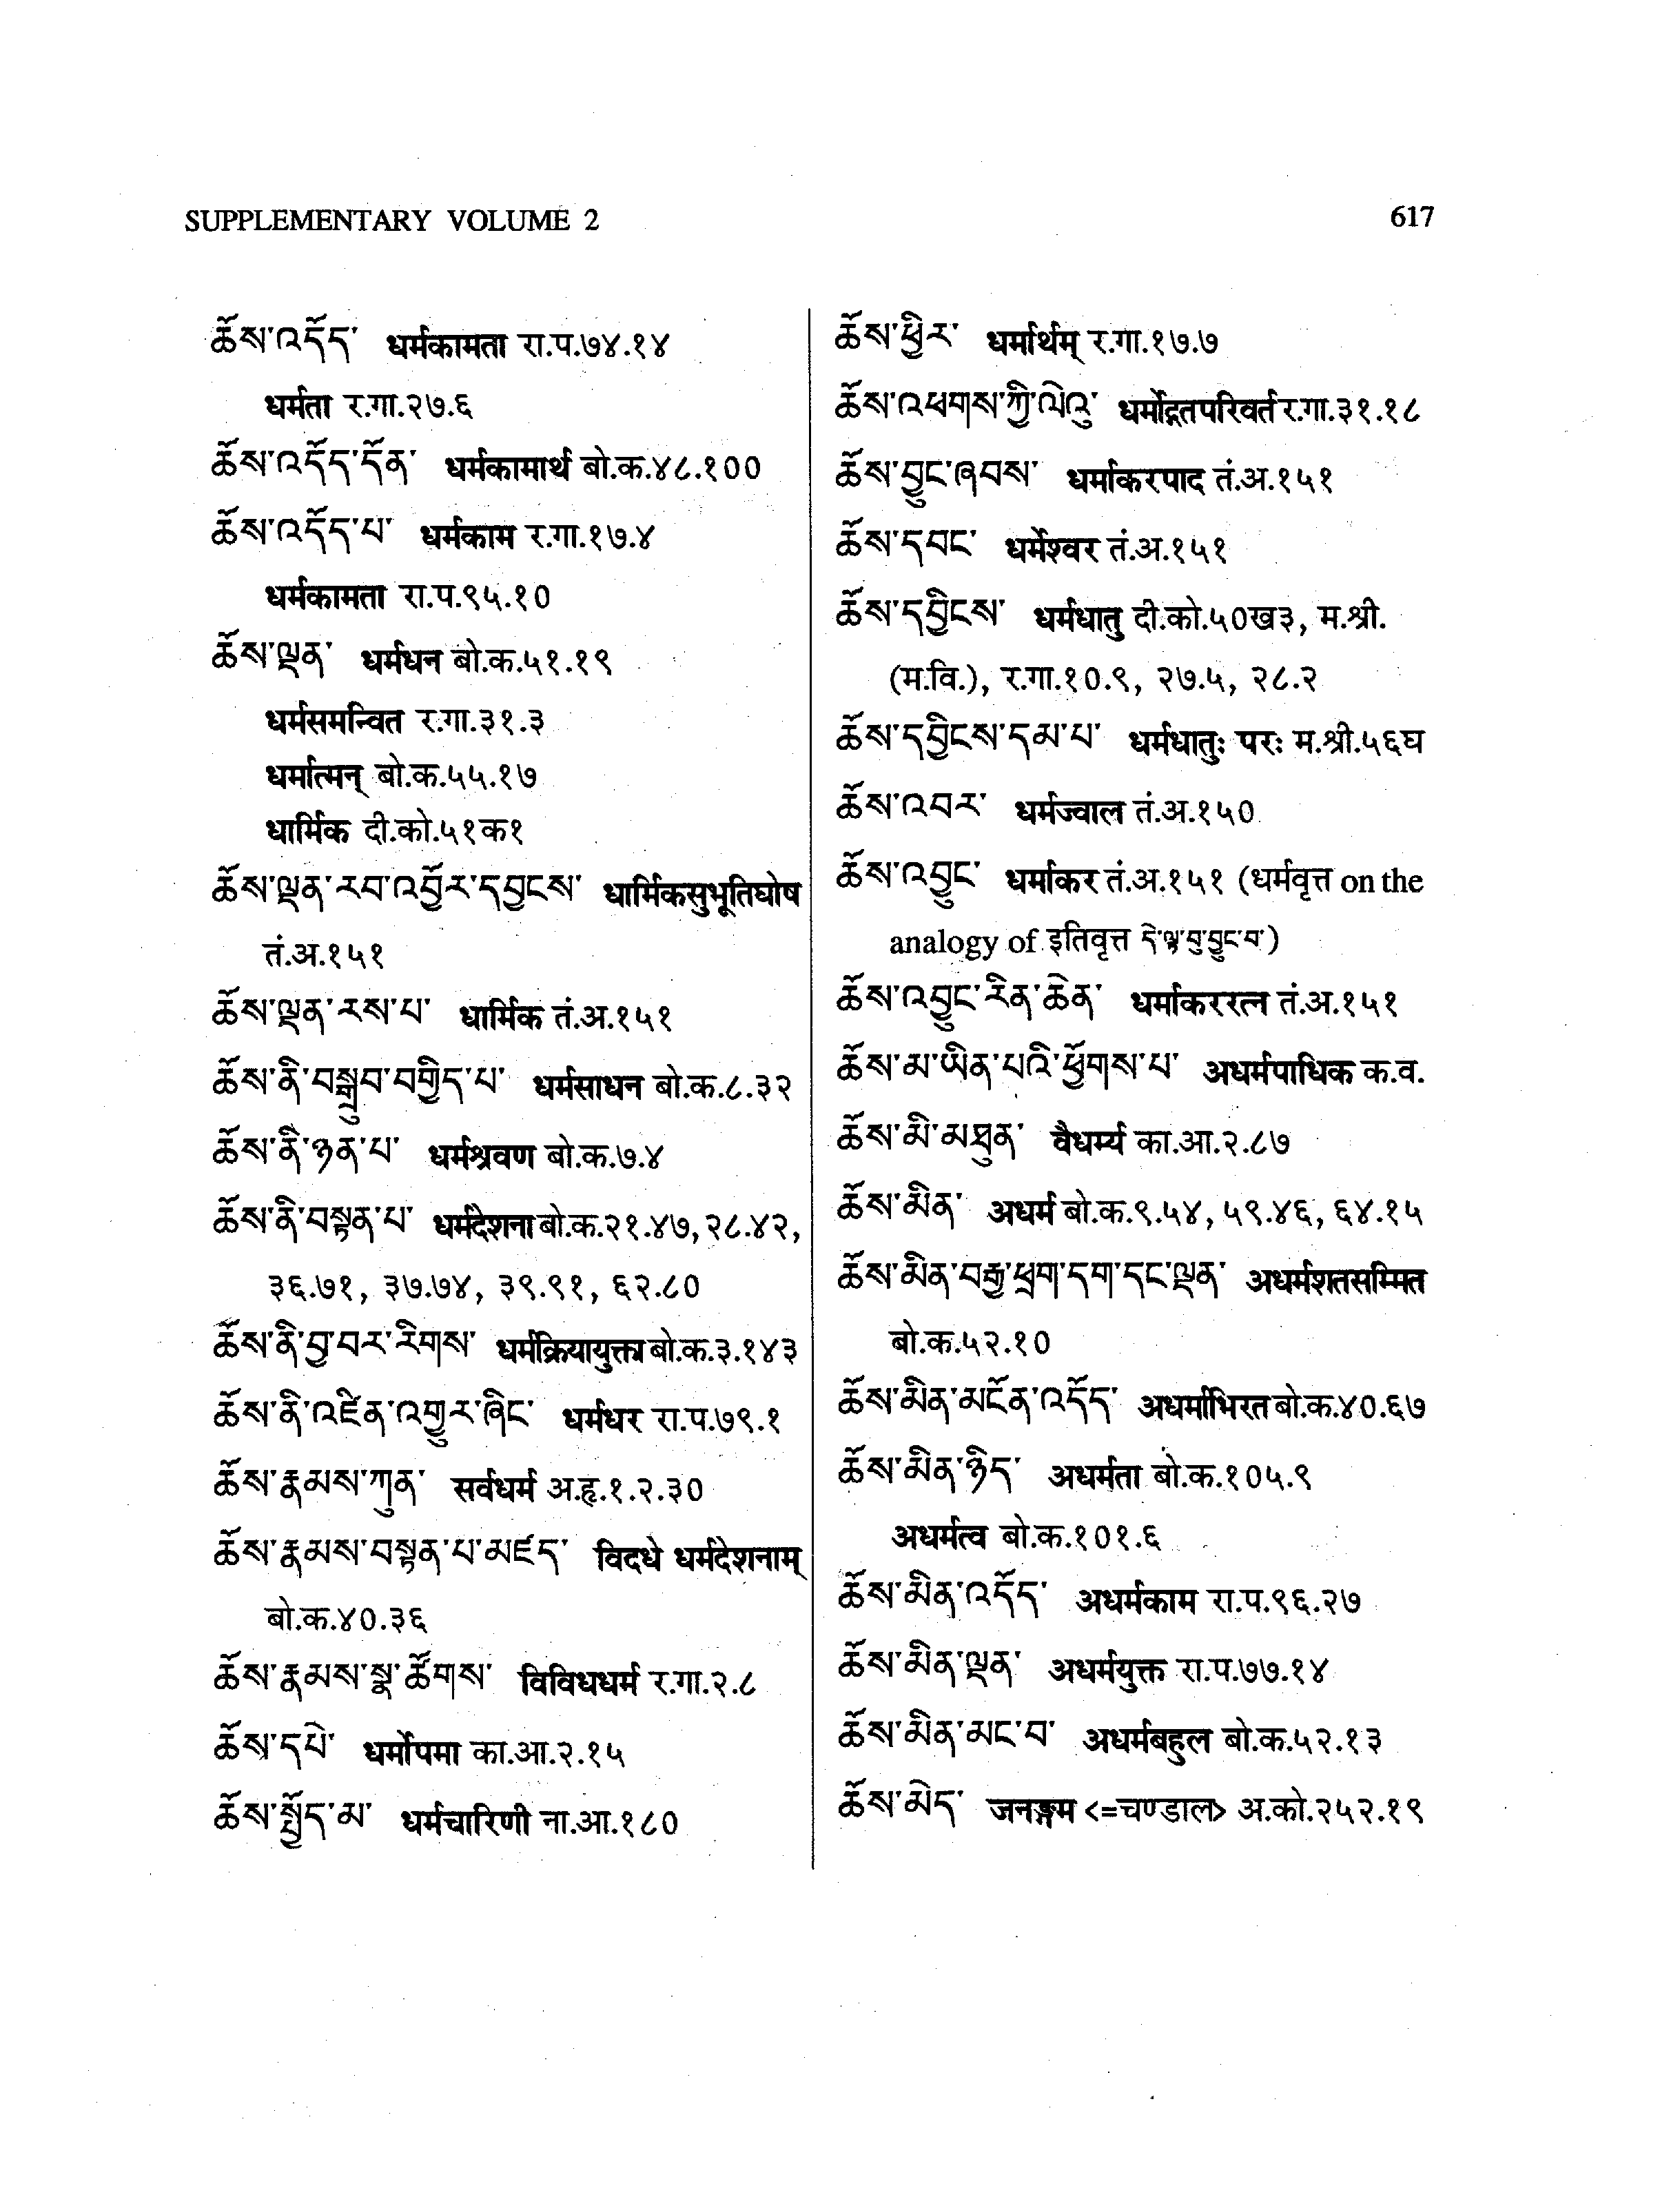 SUPPLEMENTARY VOLUME 2
617
ཆོས་འདོད་ धर्मकामता रा.प.७४.१४
धर्मता र.गा.२७.६
ཆོས་འདོད་དོན་ धर्मकामार्थ बो.क.४८.१००
ཆོས་འདོད་པ་ धर्मकाम र.गा.१७.४
धर्मकामता रा.प.९५.१०
ཆོས་ལྡན་ धर्मधन बो.क.५१.१९
धर्मसमन्वित र.गा.३१.३
धर्मात्मन् बो.क.५५.१७
धार्मिक दी.को.५१क१
ཆོས་ལྡན་རབ་འབྱོར་དབྱངས་ धार्मिकसुभूतिघोष
तं.अ.१५१
ཆོས་ལྡན་རས་པ་ धार्मिक तं.अ.१५१
ཆོས་ནི་བསྒྲུབ་བགྱིད་པ་ धर्मसाधन बो.क.८.३२
ཆོས་ནི་ཉན་པ་ धर्मश्रवण बो.क.७.४
ཆོས་ནི་བསྟན་པ་ धर्मदेशना बो.क.२१.४७, २८.४२,
३६.७१, ३७.७४, ३९.९१, ६२.८०
ཆོས་ནི་བྱ་བར་རིགས་ धर्मक्रियायुक्ता बो.क.३.१४३
ཆོས་ནི་འཛིན་འགྱུར་ཞིང་ धर्मधर रा.प.७९.१
ཆོས་རྣམས་ཀུན་ सर्वधर्म अ.हृ.१.२.३०
ཆོས་རྣམས་བསྟན་པ་མཛད་ विदधे धर्मदेशनाम्
बो.क.४०.३६
ཆོས་རྣམས་སྣ་ཚོགས་ विविधधर्म र.गा.२.८
ཆོས་དཔེ་ धर्मोपमा का.आ.२.१५
ཆོས་སྤྱོད་མ་ धर्मचारिणी ना.आ.१८०
ཆོས་ཕྱིར་ धर्मार्थम् र.गा.१७.७
ཆོས་འཕགས་ཀྱི་ལེའུ་ धर्मोद्गतपरिवर्त र.गा.३१.१८
ཆོས་བྱུང་ཞབས་ धर्माकरपाद तं.अ.१५१
ཆོས་དབང་ धर्मेश्वर तं.अ.१५१
ཆོས་དབྱིངས་ धर्मधातु दी.को.५०ख३, म.श्री.
(म.वि.), र.गा.१०.९, २७.५, २८.२
ཆོས་དབྱིངས་དམ་པ་ धर्मधातुः परः म.श्री.५६घ
ཆོས་འབར་ धर्मज्वाल तं.अ.१५०
ཆོས་འབྱུང་ धर्माकर तं.अ.१५१ (धर्मवृत्त on the
analogy of इतिवृत्त དེ་ལྟ་བུ་བྱུང་བ་)
ཆོས་འབྱུང་རིན་ཆེན་ धर्माकररत्न तं.अ.१५१
ཆོས་མ་ཡིན་པའི་ཕྱོགས་པ་ अधर्मपाधिक क.व.
ཆོས་མི་མཐུན་ वैधर्म्य का.आ.२.८७
ཆོས་མིན་ अधर्म बो.क.९.५४, ५९.४६, ६४.१५
ཆོས་མིན་བརྒྱ་ཕྲག་དག་དང་ལྡན་ अधर्मशतसम्मित
बो.क.५२.१०
ཆོས་མིན་མངོན་འདོད་ अधर्माभिरत बो.क.४०.६७
ཆོས་མིན་ཉིད་ अधर्मता बो.क.१०५.९
अधर्मत्व बो.क.१०१.६
ཆོས་མིན་འདོད་ अधर्मकाम रा.प.९६.२७
ཆོས་མིན་ལྡན་ अधर्मयुक्त रा.प.७७.१४
ཆོས་མིན་མང་བ་ अधर्मबहुल बो.क.५२.१३
ཆོས་མེད་ जनङ्गम <=चण्डाल> अ.को.२५२.१९